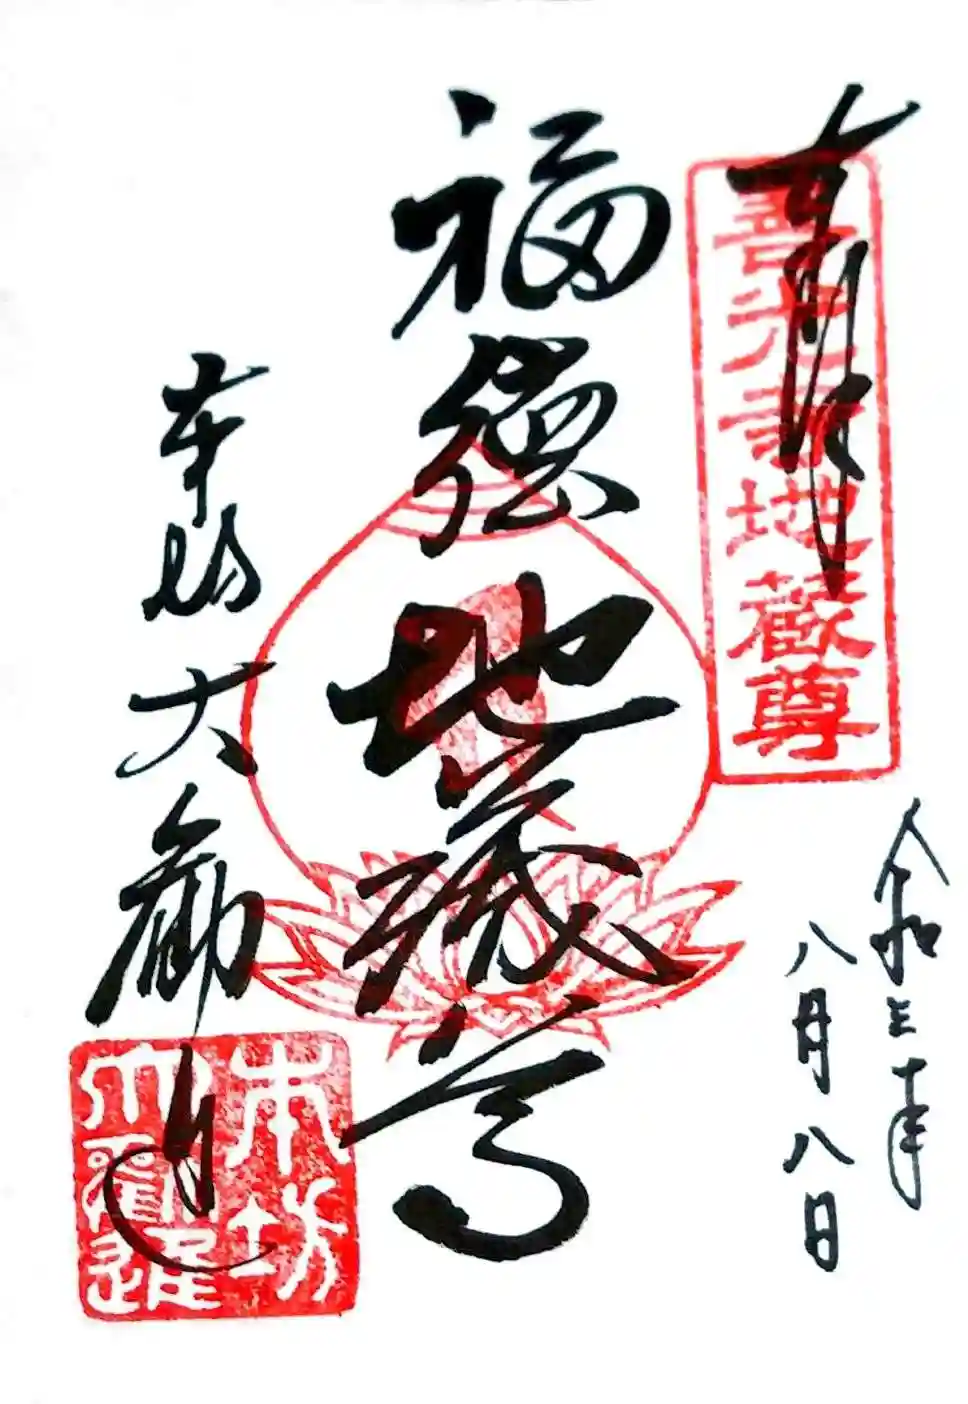 奉拝
善光寺地蔵尊
令和三年
八月八日
福徳
地蔵尊
本坊 大勧進
本坊
大勧進